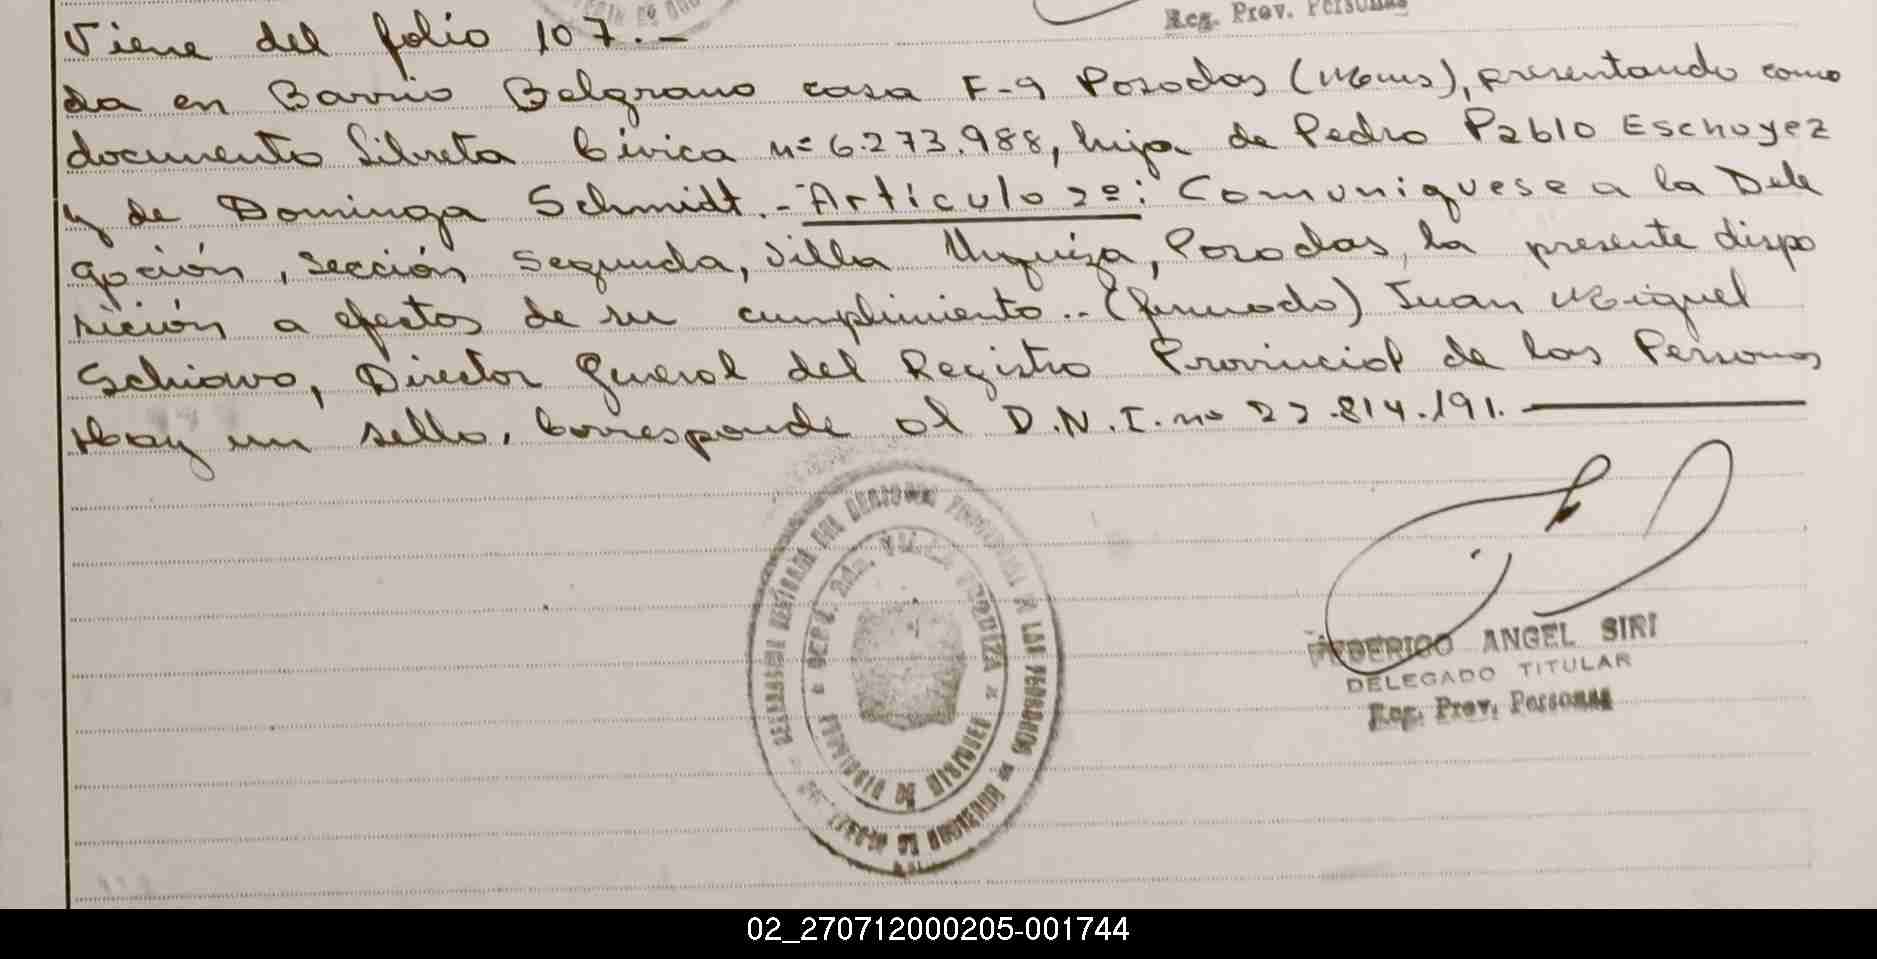 Reg. Prov. Personas
Viene del folio 107.-
da en Barrio Belgrano casa F-9 Posadas (Mnes), presentando como
documento Libreta Cívica nº 6.273.988, hija de Pedro Pablo Eschoyez
y de Dominga Schmidt.- Artículo 2º: Comuniquese a la Dele
gación, sección segunda, Villa Urquiza, Posadas, la presente dispo
sición a efectos de su cumplimiento.- (firmado) Juan Miguel
Schiavo, Director General del Registro Provincial de las Personas
Hay un sello. Corresponde al D.N.I. nº 22.814.191.
VILLA URQUIZA
PROVINCIA DE MISIONES
FEDERICO ANGEL SIRI
DELEGADO TITULAR
Reg. Prov. Personas
02_270712000205-001744